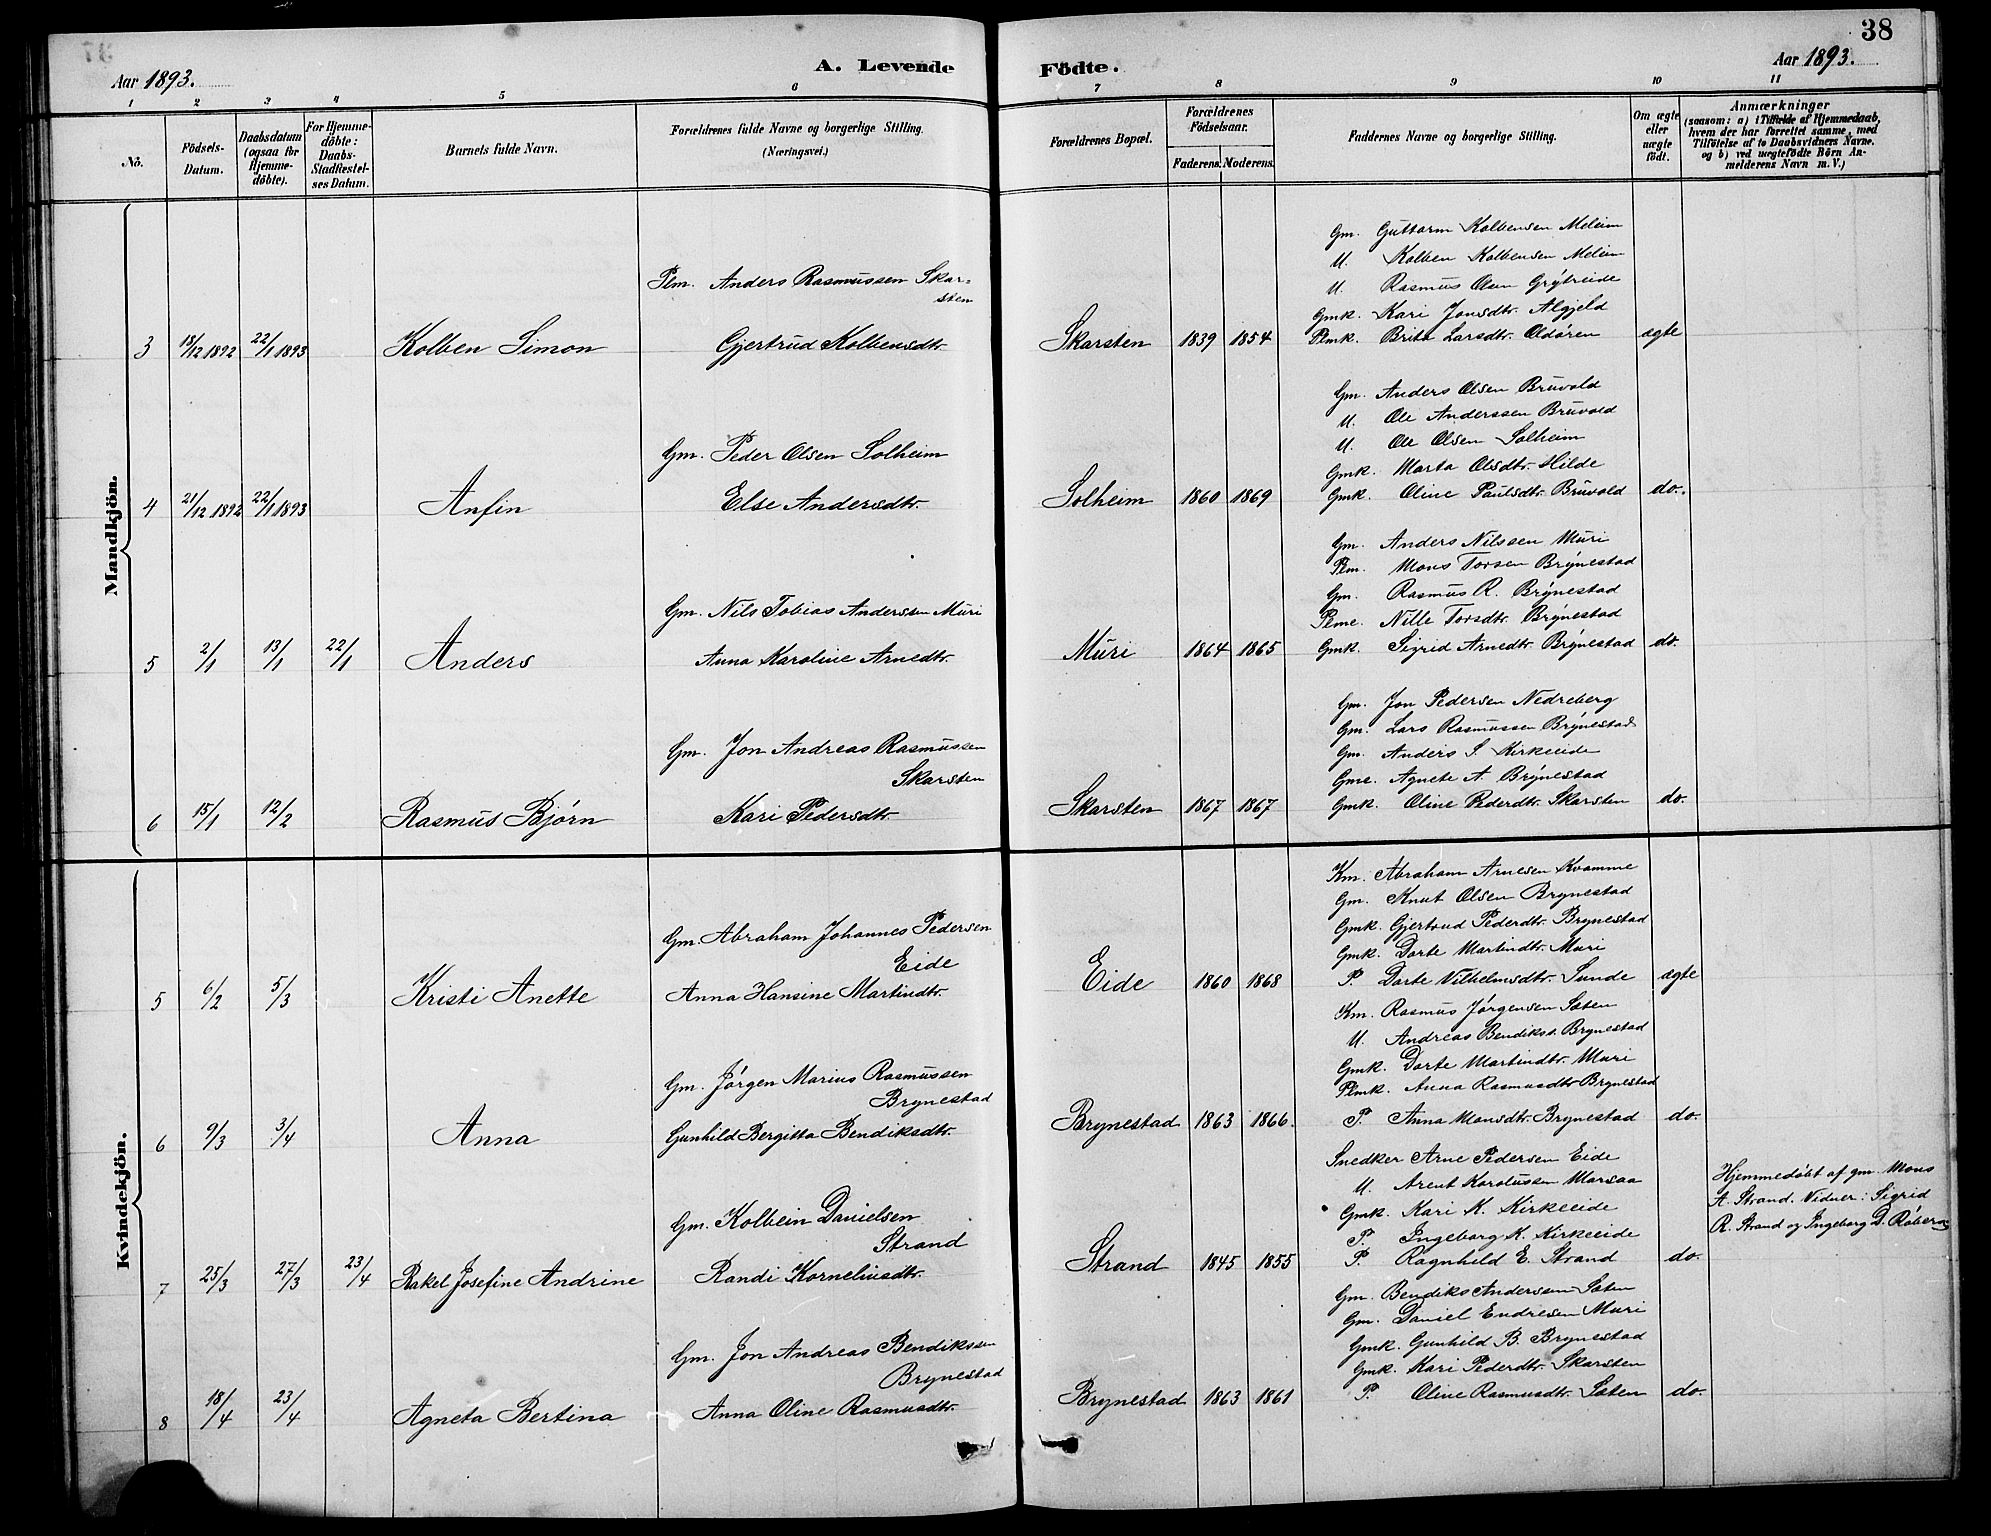 38
Aar 1893.
A. Levende Födte.
Aar 1893.
1 2 3 4 5 6 7 8 9 10 11
No.
Födsels-Datum.
Daabsdatum (ogsaa for Hjemme-döbte).
For Hjemme-döbte: Daabs-Stadfæstel-ses Datum.
Barnets fulde Navn.
Forældrenes fulde Navne og borgerlige Stilling. (Næringsvei.)
Forældrenes Bopæl.
Forældrenes Födselsaar.
Faderens. Moderens.
Faddernes Navne og borgerlige Stilling.
Om ægte eller uægte födt.
Anmærkninger
(saasom: a) i Tilfælde af Hjemmedaab, hvem der har forrettet samme, med Tilföielse af to Daabsvidners Navne. og b) ved uægtefödte Börn An-melderens Navn m. V.)
Mandkjön.
3 18/12 1892 22/1 1893 Kolben Simon
Plm. Anders Rasmussen Skar-
sten
Gjertrud Kolbensdtr.
Skarsten 1839 1854
Gm. Guttorm Kolbensen Meleim
U. Kolben Kolbensen Meleim
U. Rasmus Olsen Grytreide
Gmk. Kari Jonsdtr. Algjeld
Plmk. Brita Larsdtr. Oldören ægte
4 21/12 1892 22/1 1893 Anfin
Gm. Peder Olsen Solheim
Else Andersdtr.
Solheim 1860 1869
Gm. Anders Olsen Bruvold
U. Ole Anderssen Bruvold
U. Ole Olsen Solheim
Gmk. Marta Olsdtr. Hilde
Gmk. Oline Paulsdtr. Bruvold do.
5 2/1 13/1 22/1 Anders
Gm. Nils Tobias Anderssen Muri
Anna Karoline Arnedtr.
Muri 1864 1865
Gm. Anders Nilssen Muri
Plm. Mons Torsen Brynestad
Gm. Rasmus R. Brynestad
Plme. Nille Torsdtr. Brynestad
Gmk. Sigrid Arnedtr. Brynestad do.
6 15/1 12/2 Rasmus Bjørn
Gm. Jon Andreas Rasmussen
Skarsten
Kari Pedersdtr.
Skarsten 1867 1867
Gm. Jon Pedersen Nedreberg
Gm. Lars Rasmussen Brynestad
Gm. Anders S. Kirkeeide
Gme. Agnete A. Brynestad
Gmk. Oline Pederdtr. Skarsten do.
Kvindekjön.
5 6/2 5/3 Kristi Anette
Gm. Abraham Johannes Pedersen
Eide
Anna Hansine Martindtr.
Eide 1860 1868
Km. Abraham Arnesen Kvamme
Gm. Knut Olsen Brynestad
Gmk. Gjertrud Pederdtr. Brynestad
Gmk. Dorte Martindtr. Muri
P. Dorte Vilhelmsdtr. Sunde ægte
6 9/3 3/4 Anna
Gm. Jørgen Marius Rasmussen
Brynestad
Gunhild Bergitta Bendiksdtr.
Brynestad 1863 1866.
Km. Rasmus Jørgensen Sæten
U. Andreas Bendikss. Brynestad
Gmk. Dorte Martindtr. Muri
Plmk. Anna Rasmusdtr Brynestad
P. Anna Monsdtr. Brynestad do.
7 25/3 27/3 23/4 Rakel Josefine Andrine
Gm. Kolbein Danielsen
Strand
Randi Korneliusdtr.
Strand 1845 1855
Snedker Arne Pedersen Eide
U. Arent Karolussen Marsaa
Gmk. Kari K. Kirkeeide
P. Ingeborg K. Kirkeeide
P. Ragnhild E. Strand do.
Hjemmedöbt af gm. Mons
A. Strand. Vidner: Sigrid
R. Strand og Ingeborg D.
8 18/4 23/4 Agneta Bertina
Gm. Jon Andreas Bendikssen
Brynestad
Anna Oline Rasmusdtr.
Brynestad 1863 1861
Gm. Bendiks Andersen Sæten
Gm. Daniel Endresen Muri
Gmk. Gunhild B. Brynestad
Gmk. Kari Pederdtr. Skarsten
P. Oline Rasmusdtr. Sæten do.